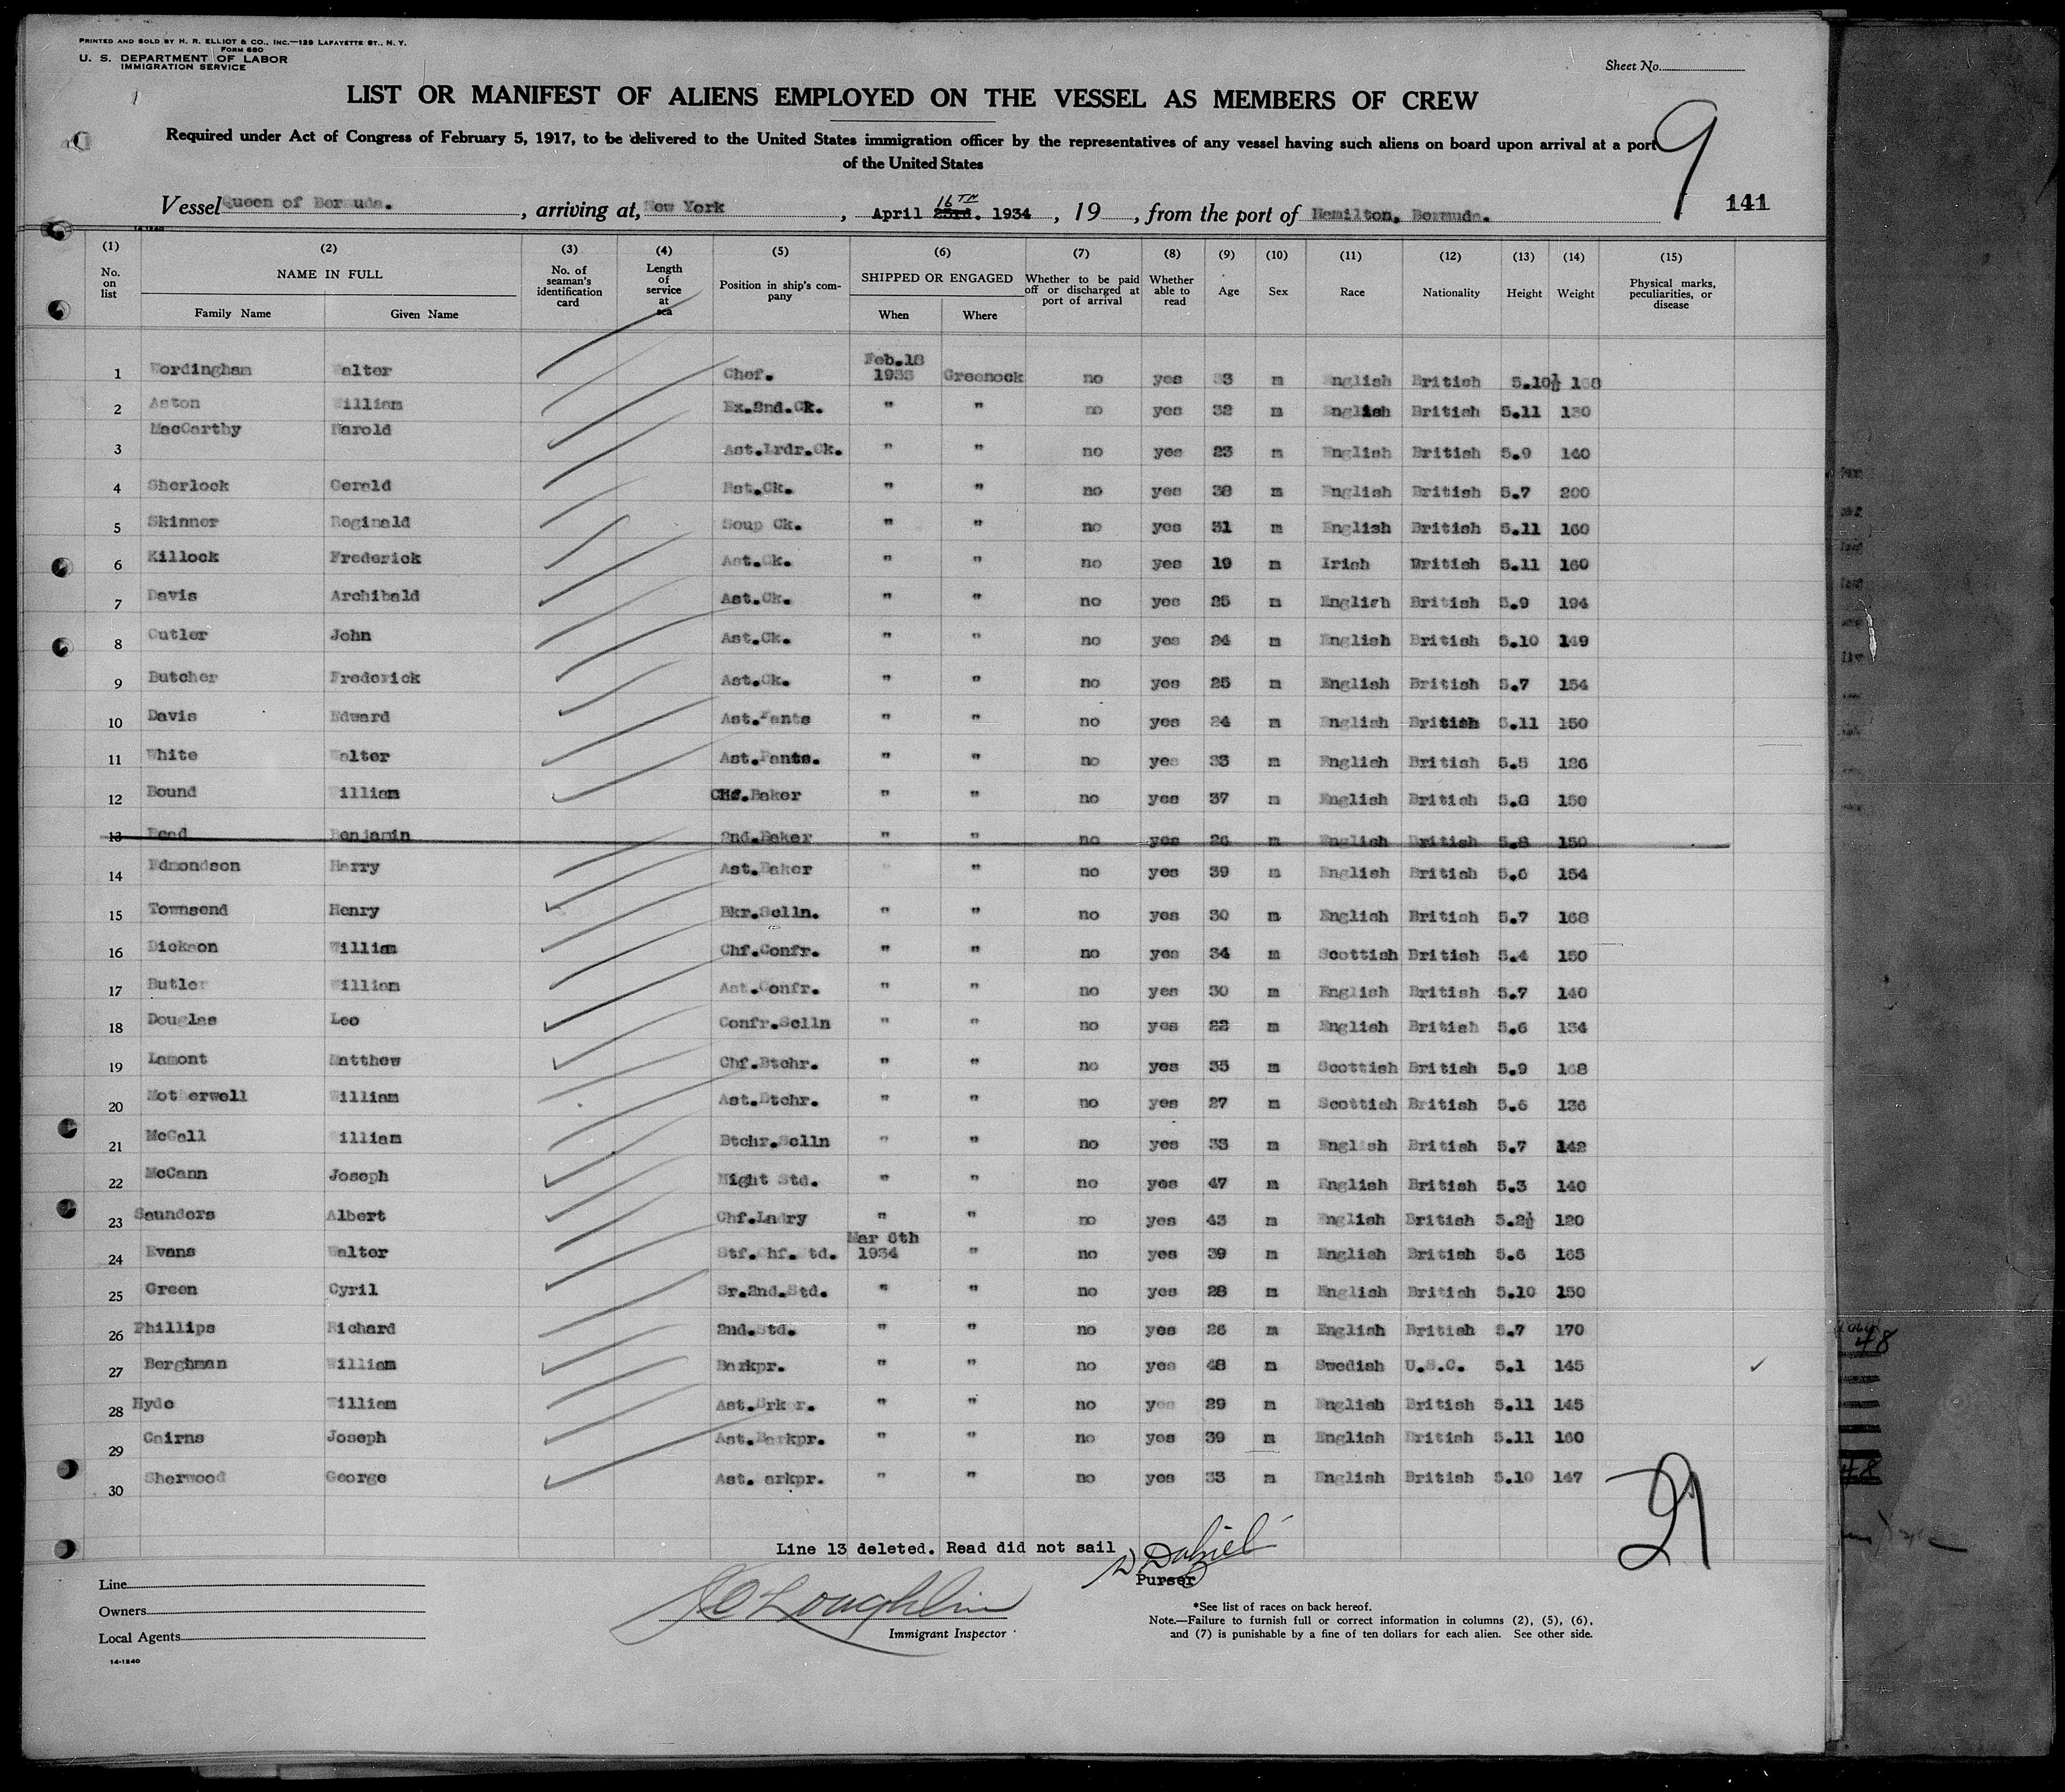 PRINTED AND SOLD BY H. R. ELLIOT & CO., INC.—129 LAFAYETTE ST., N. Y.
FORM 680
U. S. DEPARTMENT OF LABOR
IMMIGRATION SERVICE
Sheet No.
LIST OR MANIFEST OF ALIENS EMPLOYED ON THE VESSEL AS MEMBERS OF CREW
Required under Act of Congress of February 5, 1917, to be delivered to the United States immigration officer by the representatives of any vessel having such aliens on board upon arrival at a port
of the United States
9
141
Vessel Queen of Bermuda., arriving at, New York, April 23rd. 16TH 1934, 19, from the port of Hamilton, Bermuda.
14-1240
(1) No. on list (2) NAME IN FULL Family Name Given Name (3) No. of seaman's identification card (4) Length of service at sea (5) Position in ship's company (6) SHIPPED OR ENGAGED When Where (7) Whether to be paid off or discharged at port of arrival (8) Whether able to read (9) Age (10) Sex (11) Race (12) Nationality (13) Height (14) Weight (15) Physical marks, peculiarities, or disease
1 Wordingham Walter Chef. Feb.18 1933 Greenock no yes 33 m English British 5.10½ 168
2 Aston William Ex.2nd.Ck. " " no yes 32 m English British 5.11 130
3 MacCarthy Harold Ast.Lrdr.Ck. " " no yes 23 m English British 5.9 140
4 Sherlock Gerald Rst.Ck. " " no yes 38 m English British 5.7 200
5 Skinner Reginald Soup Ck. " " no yes 31 m English British 5.11 160
6 Killock Frederick Ast.Ck. " " no yes 19 m Irish British 5.11 160
7 Davis Archibald Ast.Ck. " " no yes 25 m English British 5.9 194
8 Cutler John Ast.Ck. " " no yes 24 m English British 5.10 149
9 Butcher Frederick Ast.Ck. " " no yes 25 m English British 5.7 154
10 Davis Edward Ast.Pants " " no yes 24 m English British 5.11 150
11 White Walter Ast.Pants. " " no yes 33 m English British 5.5 136
12 Bound William Chf.Baker " " no yes 37 m English British 150
13 Read Benjamin 2nd.Baker " " no yes 26 m English British 5.8 150
14 Edmondson Harry Ast.Baker " no yes 39 m English British 5.6 154
15 Townsend Henry Bkr.Sclln. " " no yes 30 m English British 5.7 168
16 Dickson William Chf.Confr. " " no yes 34 m Scottish British 5.4 150
17 Butler William Ast.Confr. " " no yes 30 m English British 5.7 140
18 Douglas Leo Confr.Sclln " " no yes 22 m English British 5.6 134
19 Lamont Matthew Chf.Btchr. " " no yes 35 m Scottish British 5.9 168
20 Motherwell William Ast.Btchr. " " no yes 27 m Scottish British 5.6 136
21 McCall William Btchr.Sclln " " no yes 33 m English British 5.7 142
22 McCann Joseph Night Std. " " no yes 47 m English British 5.3 140
23 Saunders Albert Chf.Lndry " " no yes 43 m English British 5.2½ 120
24 Evans Walter Stf.Chf.Std. Mar 6th 1934 " no yes 39 m English British 5.6 165
25 Green Cyril Sr.2nd.Std. " " no yes 28 m English British 5.10 150
26 Phillips Richard 2nd.Std. " " no yes 26 m English British 5.7 170
27 Berghman William Barkpr. " " no yes 48 m Swedish U.S.C. 5.1 145 ✓
28 Hyde William Ast.Brkpr. " " no yes 29 m English British 5.11 145
29 Cairns Joseph Ast.Barkpr. " " no yes 39 m English British 5.11 160
30 Sherwood George Ast. arkpr. " " no yes 33 m English British 5.10 147
29
Line 13 deleted. Read did not sail
Purser
Line
Owners
Local Agents
14-1240
Immigrant Inspector
*See list of races on back hereof.
Note.—Failure to furnish full or correct information in columns (2), (5), (6),
and (7) is punishable by a fine of ten dollars for each alien. See other side.
48
48